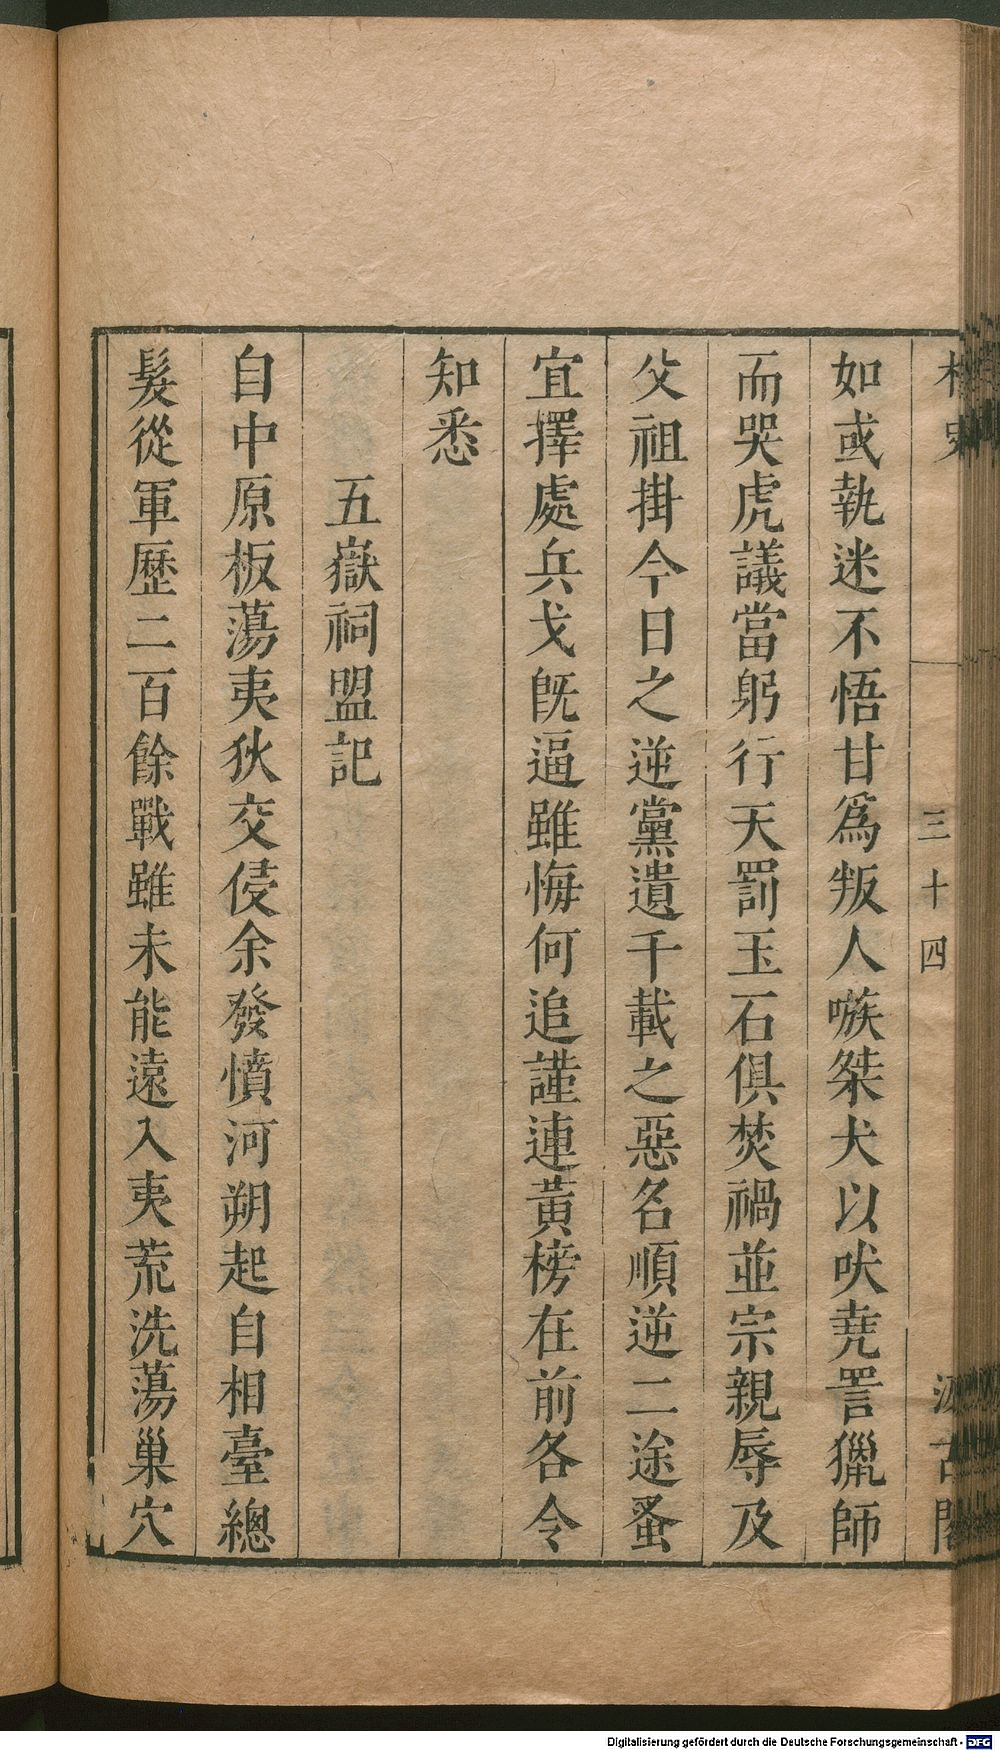 三十四
如或執迷不悟甘爲叛人嗾桀犬以吠堯詈獵師
而哭虎議當躬行天罰玉石俱焚禍並宗親辱及
父祖掛今日之逆黨遺千載之惡名順逆二途蚤
宜擇處兵戈旣逼雖悔何追謹連黃榜在前各令
知悉
五嶽祠盟記
自中原板蕩夷狄交侵余發憤河朔起自相臺總
髮從軍歷二百餘戰雖未能遠入夷荒洗蕩巢穴
Digitalisierung gefördert durch die Deutsche Forschungsgemeinschaft - DFG